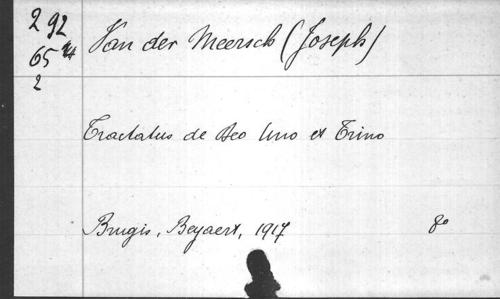 292
65
2
Van der Meersch (Joseph)
Tractatus de Deo Uno et Trino
Brugis, Beyaert, 1917 8°